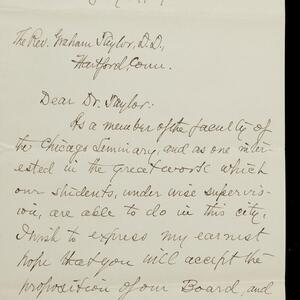 The Rev. Graham Taylor, D.D.,
Hartford, Conn.
Dear Dr. Taylor:
As a member of the faculty of
the Chicago Seminary, and as one inter-
ested in the great work which
our students, under wise supervis-
ion, are able to do in this city,
I wish to express my earnest
hope that you will accept the
proposition of our Board, and